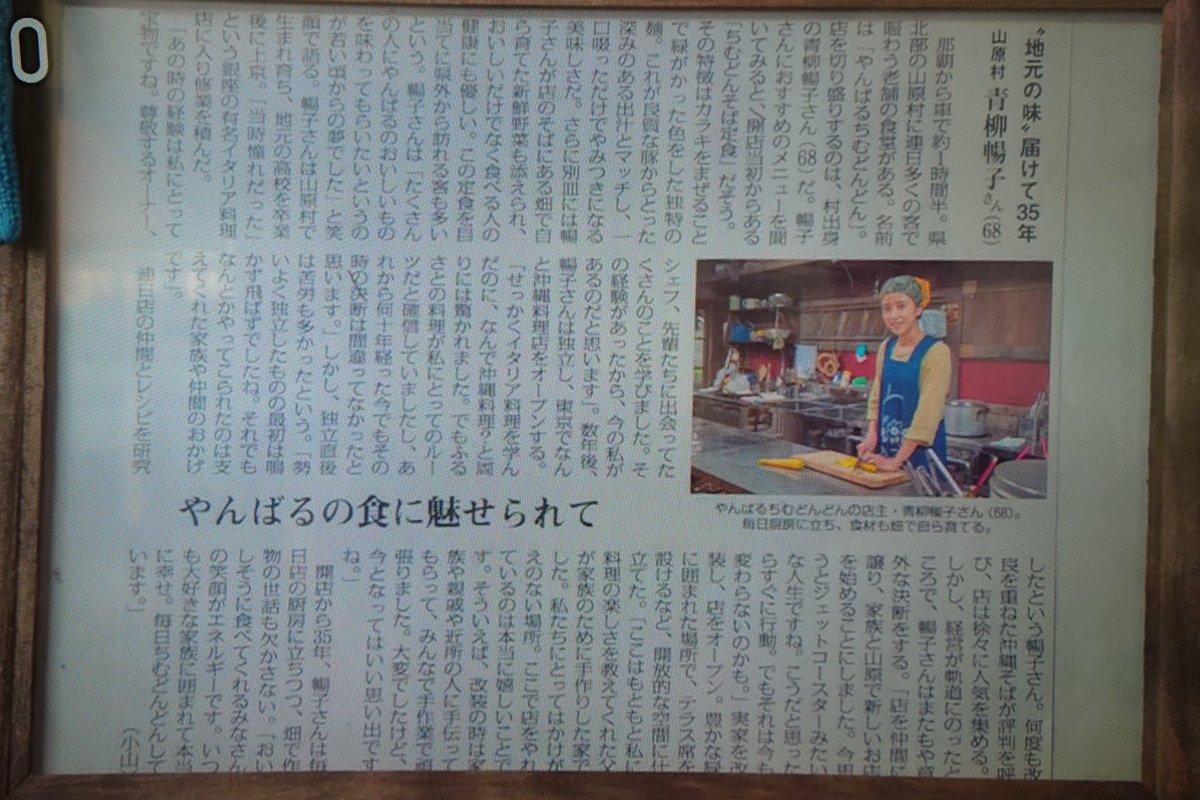 〝地元の味〟届けて35年
山原村 青柳暢子さん(68)
那覇から車で約1時間半。県
北部の山原村に連日多くの客で
賑わう老舗の食堂がある。名前
は「やんばるちむどんどん」。
店を切り盛りするのは、村出身
の青柳暢子さん(68)だ。暢子
さんにおすすめのメニューを聞
いてみると、〈開店当初からある
ちむどんそば定食〉だそう。
その特徴はカラキをまぜること
で緑がかった色をした独特の
麺。これが良質な豚からとった
深みのある出汁とマッチし、一
口啜っただけでやみつきになる
美味しさだ。さらに別皿には暢
子さんが店のそばにある畑で自
ら育てた新鮮野菜も添えられ、
おいしいだけでなく食べる人の
健康にも優しい。この定食を目
当てに県外から訪れる客も多い
という。暢子さんは「たくさん
の人にやんばるのおいしいもの
を味わってもらいたいというの
が若い頃からの夢でした」と笑
顔で語る。暢子さんは山原村で
生まれ育ち、地元の高校を卒業
後に上京。「当時憧れだった」
という銀座の有名イタリア料理
店に入り修業を積んだ。
「あの時の経験は私にとって
宝物ですね。尊敬するオーナー、
シェフ、先輩たちに出会ってた
くさんのことを学びました。そ
の経験があったから、今の私が
あるのだと思います」。数年後、
暢子さんは独立し、東京でなん
と沖縄料理店をオープンする。
「せっかくイタリア料理を学ん
だのに、なんで沖縄料理?と周
りには驚かれました。でもふる
さとの料理が私にとってのルー
ツだと確信していましたし、あ
れから何十年経った今でもその
時の決断は間違ってなかったと
思います。」しかし、独立直後
は苦労も多かったという。「勢
いよく独立したものの最初は鳴
かず飛ばずでしたね。それでも
なんとかやってこられたのは支
えてくれた家族や仲間のおかげ
です」。
連日店の仲間とレシピを研究
やんばるちむどんどんの店主・青柳暢子さん(68)。
毎日厨房に立ち、食材も畑で自ら育てる。
やんばるの食に魅せられて
したという暢子さん。何度も改
良を重ねた沖縄そばが評判を呼
び、店は徐々に人気を集める。
しかし、経営が軌道にのったと
ころで、暢子さんはまたもや意
外な決断をする。「店を仲間に
譲り、家族と山原で新しいお店
を始めることにしました。今思
うとジェットコースターみたい
な人生ですね。こうだと思った
らすぐに行動。でもそれは今も
変わらないのかも。」実家を改
装し、店をオープン。豊かな緑
に囲まれた場所で、テラス席を
設けるなど、開放的な空間に仕
立てた。「ここはもともと私に
料理の楽しさを教えてくれた父
が家族のために手作りした家で
した。私たちにとってはかけが
えのない場所。ここで店をやれ
ているのは本当に嬉しいことで
す。そういえば、改装の時は家
族や親戚や近所の人に手伝って
もらって、みんなで手作業で頑
張りました。大変でしたけど、
今となってはいい思い出です
ね。」
開店から35年、暢子さんは毎
日店の厨房に立ちつつ、畑で作
物の世話も欠かさない。「おい
しそうに食べてくれるみなさん
の笑顔がエネルギーです。いつ
も大好きな家族に囲まれて本当
に幸せ。毎日ちむどんどんして
います。」
(小山